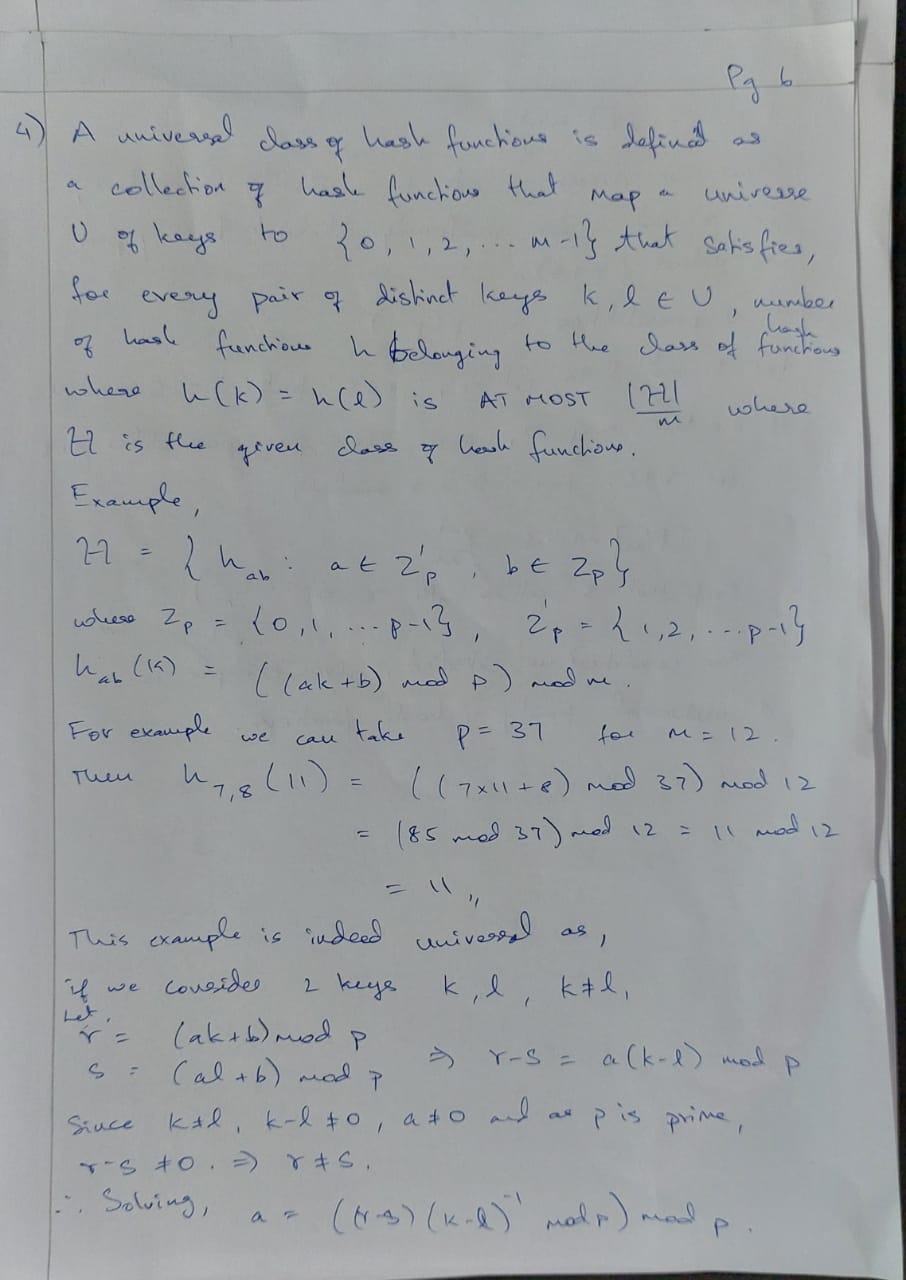 Pg 6
4) A universal class of hash functions is defined as
a collection of hash functions that map a universe
U of keys to {0, 1, 2, ... m-1} that satisfies,
for every pair of distinct keys k, l ∈ U, number
of hash functions h belonging to the class of hash functions
where h(k) = h(l) is AT MOST |H|/m where
H is the given class of hash functions.
Example,
H = { h_ab : a ∈ Z'_p , b ∈ Z_p }
where Z_p = {0, 1, ... p-1}, Z'_p = {1, 2, ... p-1}
h_ab (k) = ((ak+b) mod p) mod m.
For example we can take p = 37 for m = 12.
Then h_7,8 (11) = ((7×11+8) mod 37) mod 12
= (85 mod 37) mod 12 = 11 mod 12
= 11 〃
This example is indeed universal as,
if we consider 2 keys k, l, k≠l,
Let,
r = (ak+b) mod p
s = (al+b) mod p ⇒ r-s = a(k-l) mod p
Since k≠l, k-l ≠ 0, a ≠ 0 and as p is prime,
r-s ≠ 0. ⇒ r ≠ s.
∴ Solving, a = ((r-s) (k-l)⁻¹ mod p) mod p.